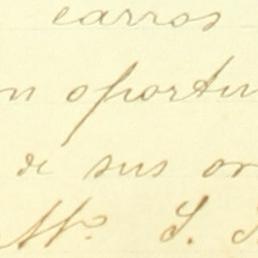 carros
n oportu
de sus or
Mo. S. S